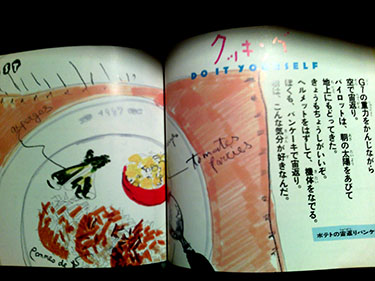 クッキング
DO IT YOURSELF
Gの重力をかんじながら
空で宙返り。
パイロットは、朝の太陽をあびて
地上にもどってきた。
きょうもちょうしがいいぞ。
ヘルメットをはずして、機体をなでる。
ぼくも、パンケーキで宙返り。
こんな気分が好きなんだ。
ポテトの宙返りパンケ
tomates
Pommes de